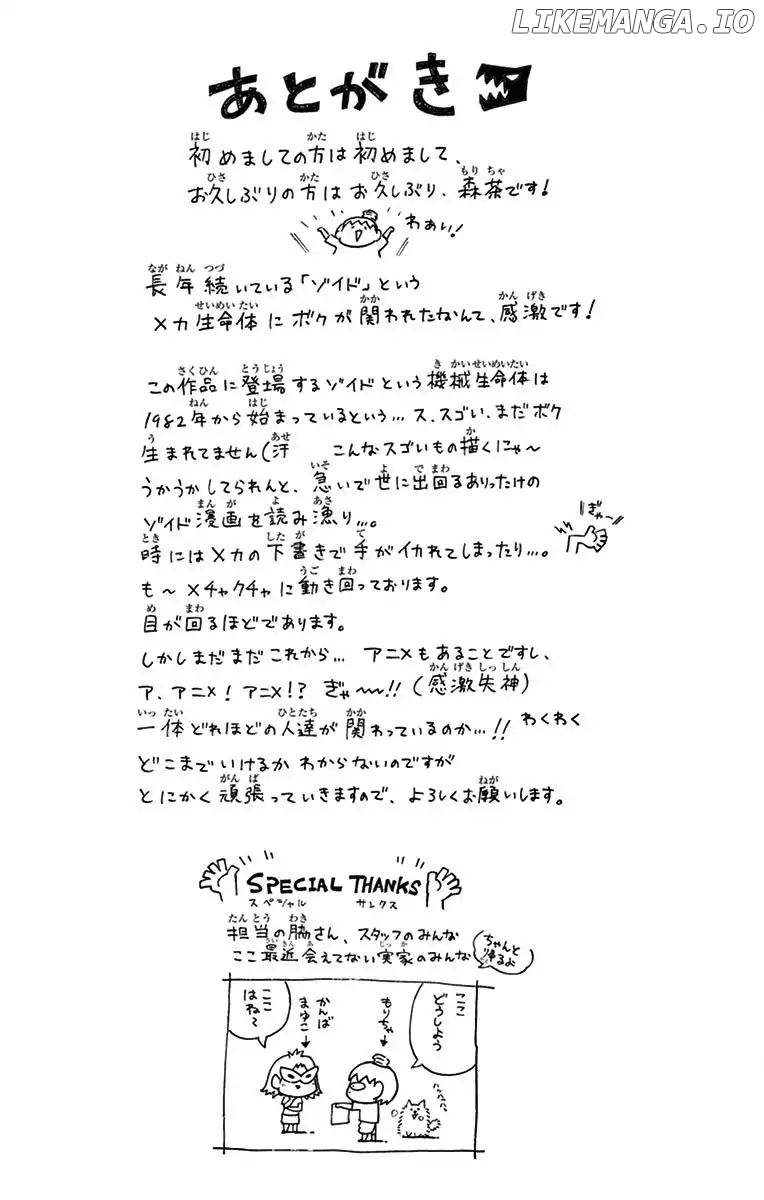 LIKEMANGA.IO
あとがき
初めましての方は初めまして、
お久しぶりの方はお久しぶり、森茶です!
わぁい!
長年続いている「ゾイド」という
メカ生命体にボクが関われたなんて、感激です!
この作品に登場するゾイドという機械生命体は
1982年から始まっているという…ス、スゴい、まだボク
生まれてません(汗 こんなスゴいもの描くにゃ〜
うかうかしてられんと、急いで世に出回るありったけの
ゾイド漫画を読み漁り…。
ぎゃー
時にはメカの下書きで手がイカれてしまったり…。
も〜メチャクチャに動き回っております。
目が回るほどであります。
しかしまだまだこれから… アニメもあることですし、
ア、アニメ!アニメ!? ぎゃ〜〜!!(感激失神)
一体どれほどの人達が関わっているのか…!! わくわく
どこまでいけるかわからないのですが
とにかく頑張っていきますので、よろしくお願いします。
SPECIAL THANKS
スペシャル サンクス
担当の脇さん、スタッフのみんな
ここ最近会えてない実家のみんな
ちゃんと帰るよ
ここどうしよう
もりちゃ→
かんばまゆこ→
ここはね〜